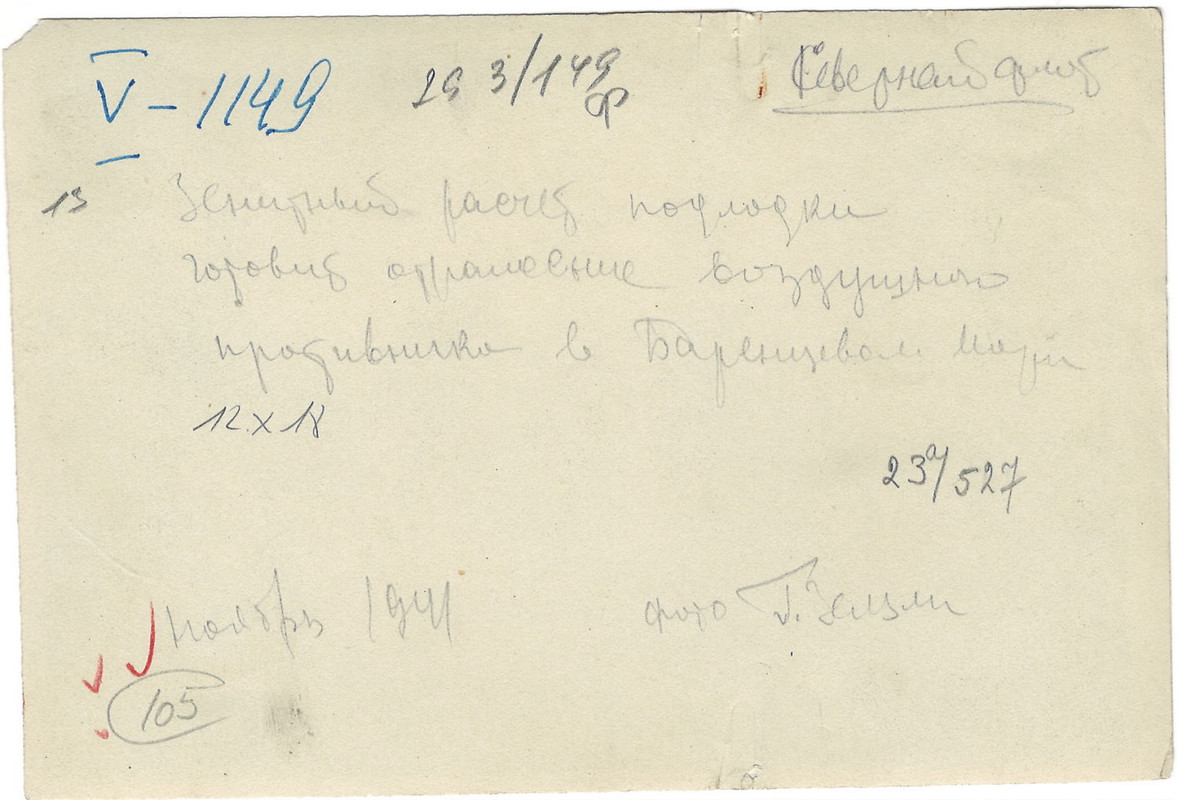 V – 1149
29 3/149
ф
Северный флот
13
Зенитный расчет подлодки
готовит отражение воздушного
противника в Баренцевом море
12 х 18
23а/527
ноябрь 1941
фото Г. Зельма
105